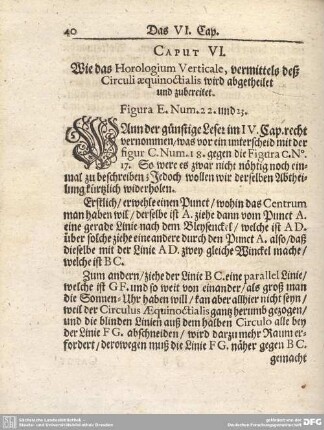 40 Das VI. Cap.
CAPUT VI.
Wie das Horologium Verticale, vermittels deß
Circuli æquinoctialis wird abgetheilet
und zubereitet.
Figura E. Num. 22. und 23.
WAnn der günstige Leser im IV. Cap. recht
vernommen/ was vor ein unterscheid mit der
figur C. Num. 18. gegen die Figura C. N°.
17. So were es zwar nicht nöhtig noch ein-
mal zu beschreiben: Jedoch wollen wir derselben Abthei-
lung kürtzlich widerholen.
Erstlich/ erwehle einen Punct/ wohin das Centrum
man haben wil/ derselbe ist A. ziehe dann vom Punct A.
eine gerade Linie nach dem Bleysenckel/ welche ist AD.
über solche ziehe eine andere durch den Punct A. also/ daß
dieselbe mit der Linie AD. zwey gleiche Winckel mache/
welche ist BC.
Zum andern/ ziehe der Linie BC. eine parallel Linie/
welche ist GF. und so weit von einander/ als groß man
die Sonnen-Uhr haben will/ kan aber allhier nicht seyn/
weil der Circulus Æquinoctialis gantz herumb gezogen/
und die blinden Linien auß dem halben Circulo alle bey
der Linie FG. abschneiden/ wird darzu mehr Raum er-
fordert/ derowegen muß die Linie FG. näher gegen BC.
gemacht
Sächsische Landesbibliothek -
Staats- und Universitätsbibliothek Dresden
gefördert von der
Deutschen Forschungsgemeinschaft
DFG